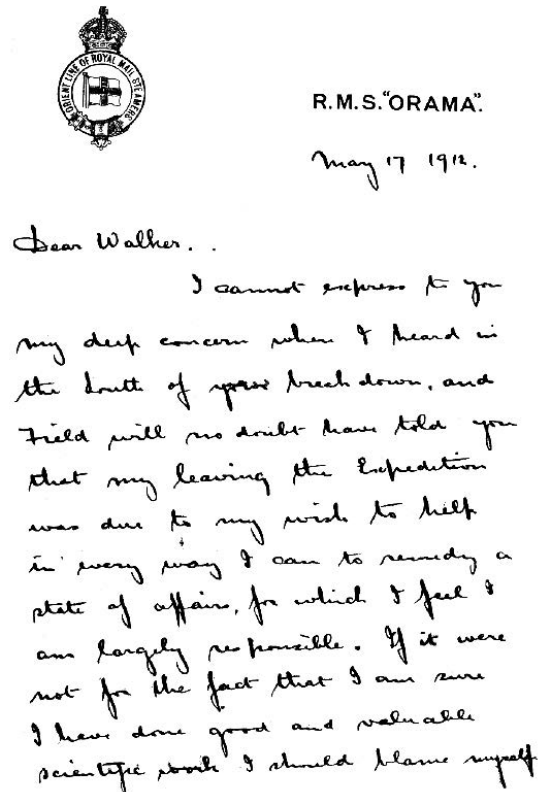 ORIENT LINE OF ROYAL MAIL STEAMERS
R.M.S. "ORAMA".
May 17 1912.
Dear Walker. .
I cannot express to you
my deep concern when I heard in
the South of your breakdown, and
Field will no doubt have told you
that my leaving the Expedition
was due to my wish to help
in every way I can to remedy a
state of affairs, for which I feel I
am largely responsible. If it were
not for the fact that I am sure
I have done good and valuable
scientific work I should blame myself